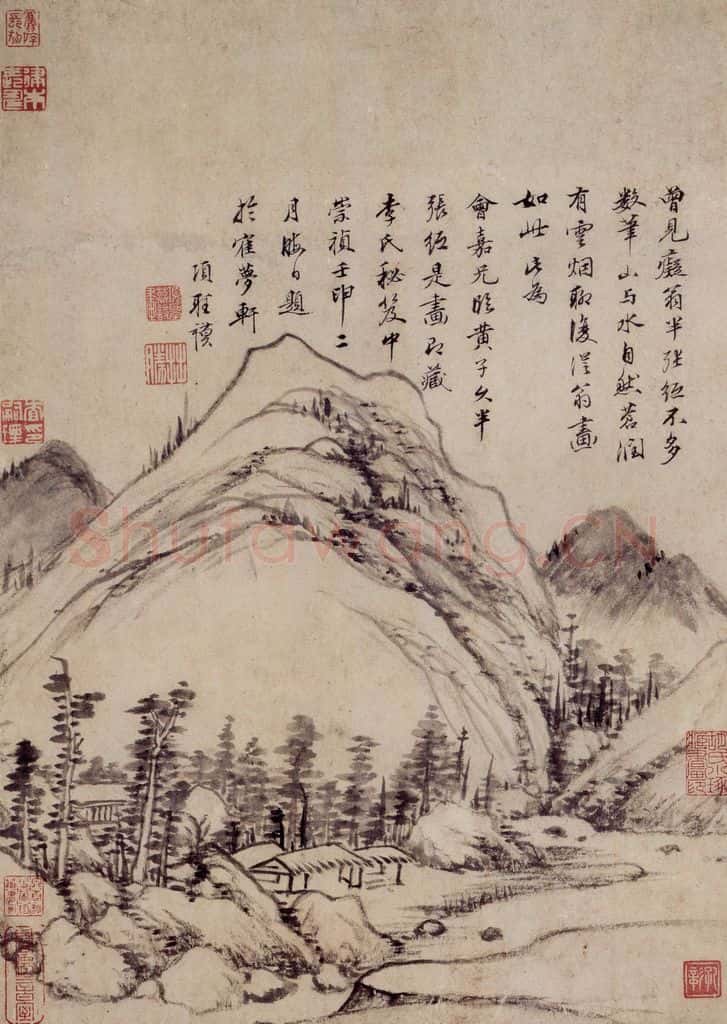 曾見癡翁半張紙不多
數筆山与水自然蒼潤
有雲烟聊復從翁畫
如此此為
會嘉兄臨黃子久半
張紙是畫即藏
李氏秘笈中
崇禎壬申二
月晦日題
於寉夢軒
項聖謨
Shufawang.CN